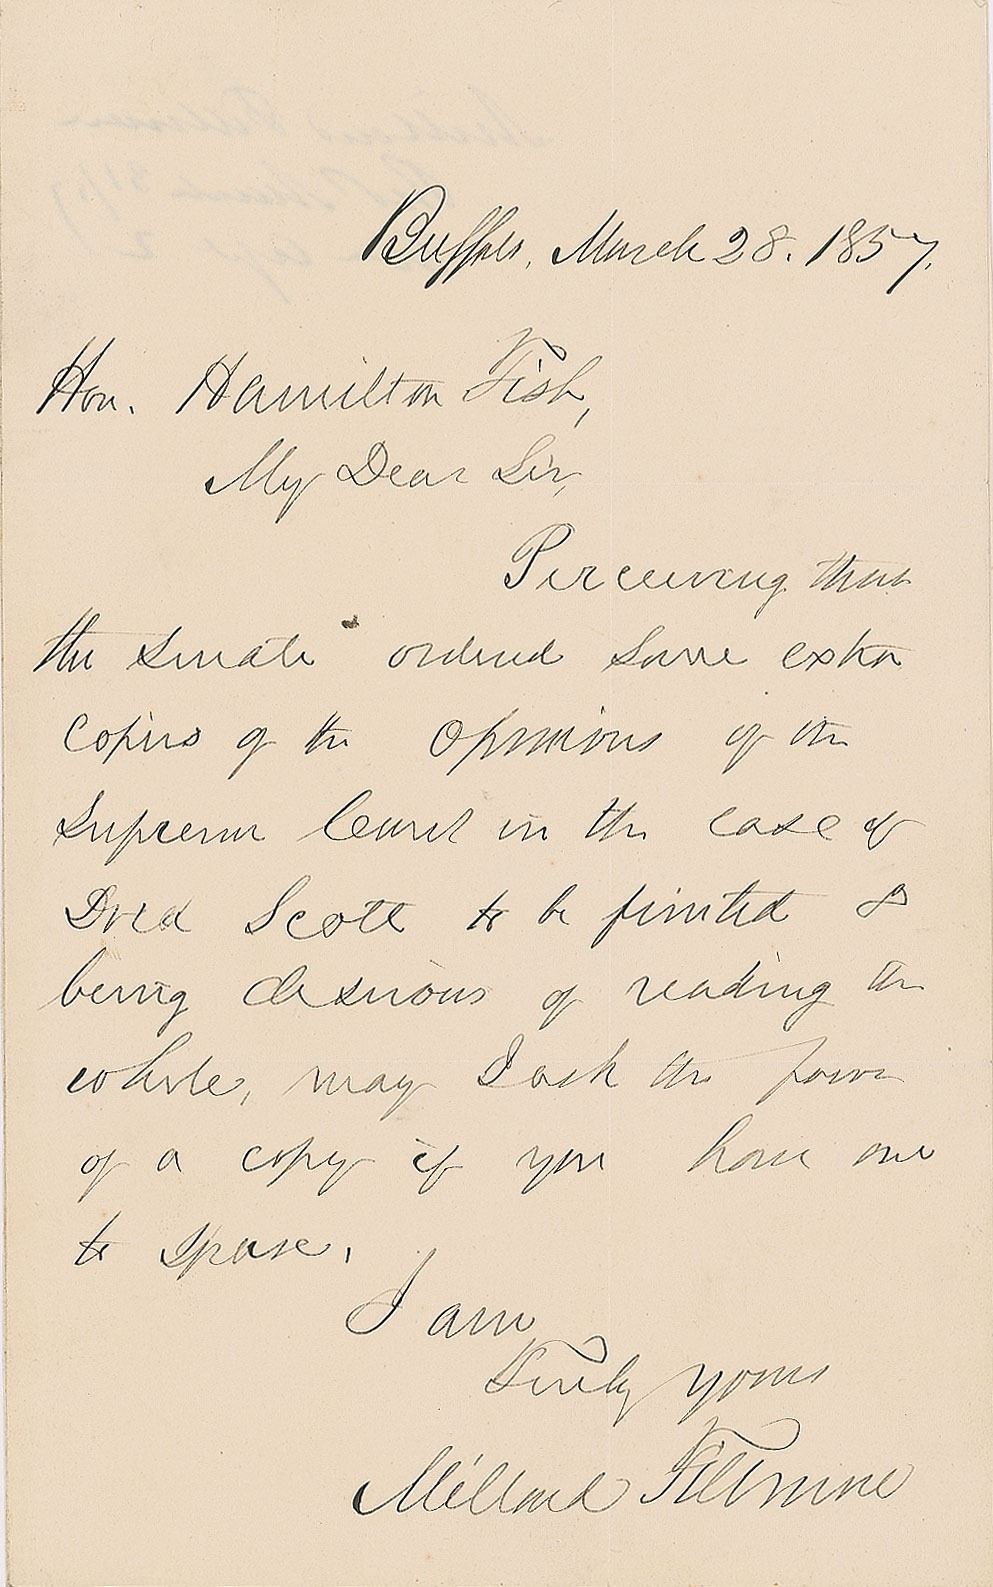 Buffalo, March 28. 1857.
Hon. Hamilton Fish,
My Dear Sir,
Perceiving that
the Senate ordered some extra
copies of the opinions of the
Supreme Court in the case of
Dred Scott to be printed &
being desirous of reading the
whole, may I ask the favor
of a copy if you have one
to spare.
I am
Truly yours
Millard Fillmore